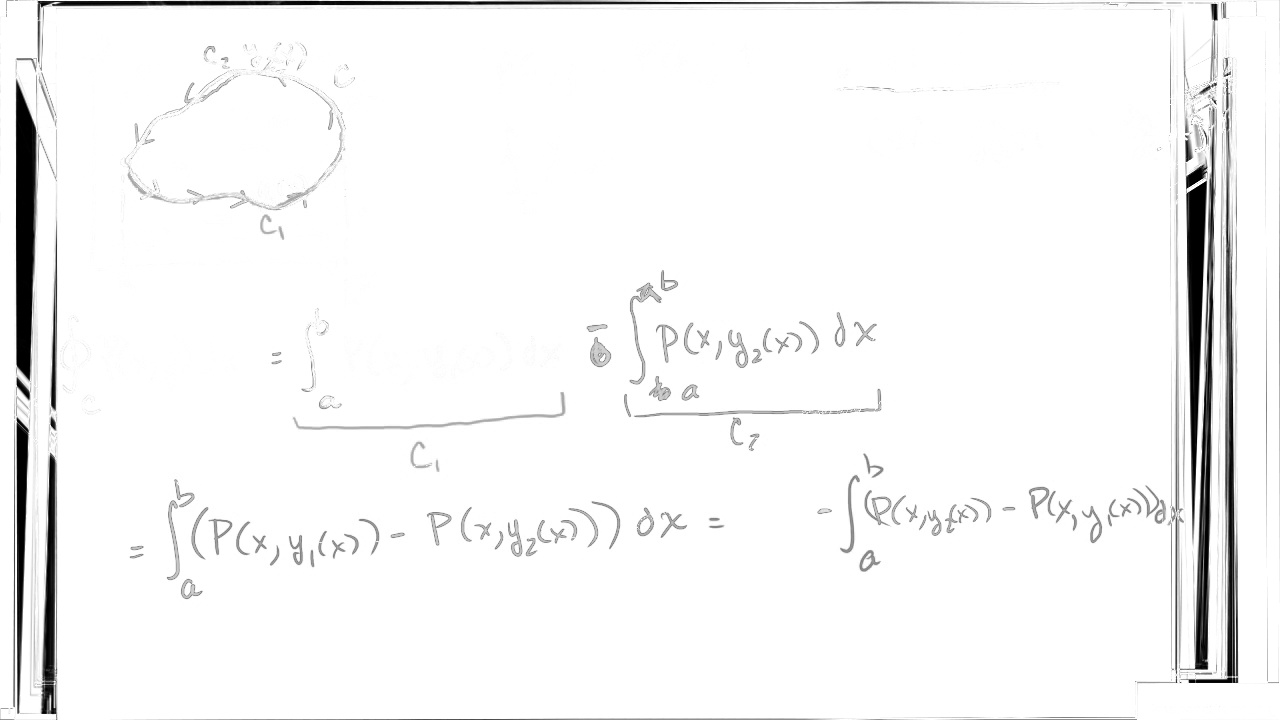 C₂ y₂(x) C
C₁
= ∫ₐᵇ P(x, y₁(x)) dx - ∫ₐᵇ P(x, y₂(x)) dx
C₁ C₂
= ∫ₐᵇ (P(x, y₁(x)) - P(x, y₂(x))) dx = - ∫ₐᵇ (P(x, y₂(x)) - P(x, y₁(x))) dx